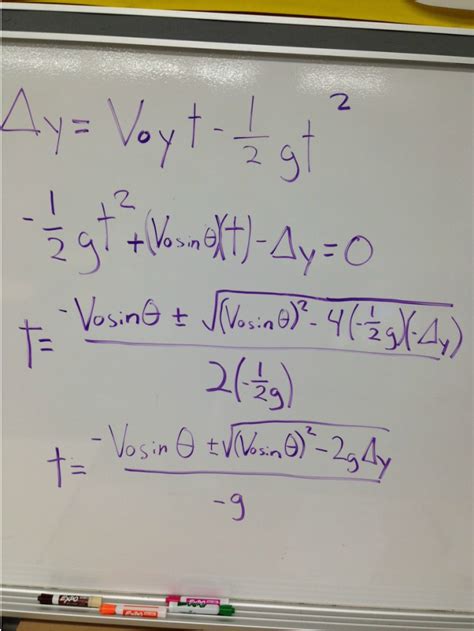 Δy = Voy t - 1/2 gt²
-1/2 gt² + (Vosinθ)(t) - Δy = 0
t = (-Vosinθ ± √((Vosinθ)² - 4(-1/2 g)(-Δy))) / 2(-1/2 g)
t = (-Vosinθ ± √((Vosinθ)² - 2gΔy)) / -g
EXPO